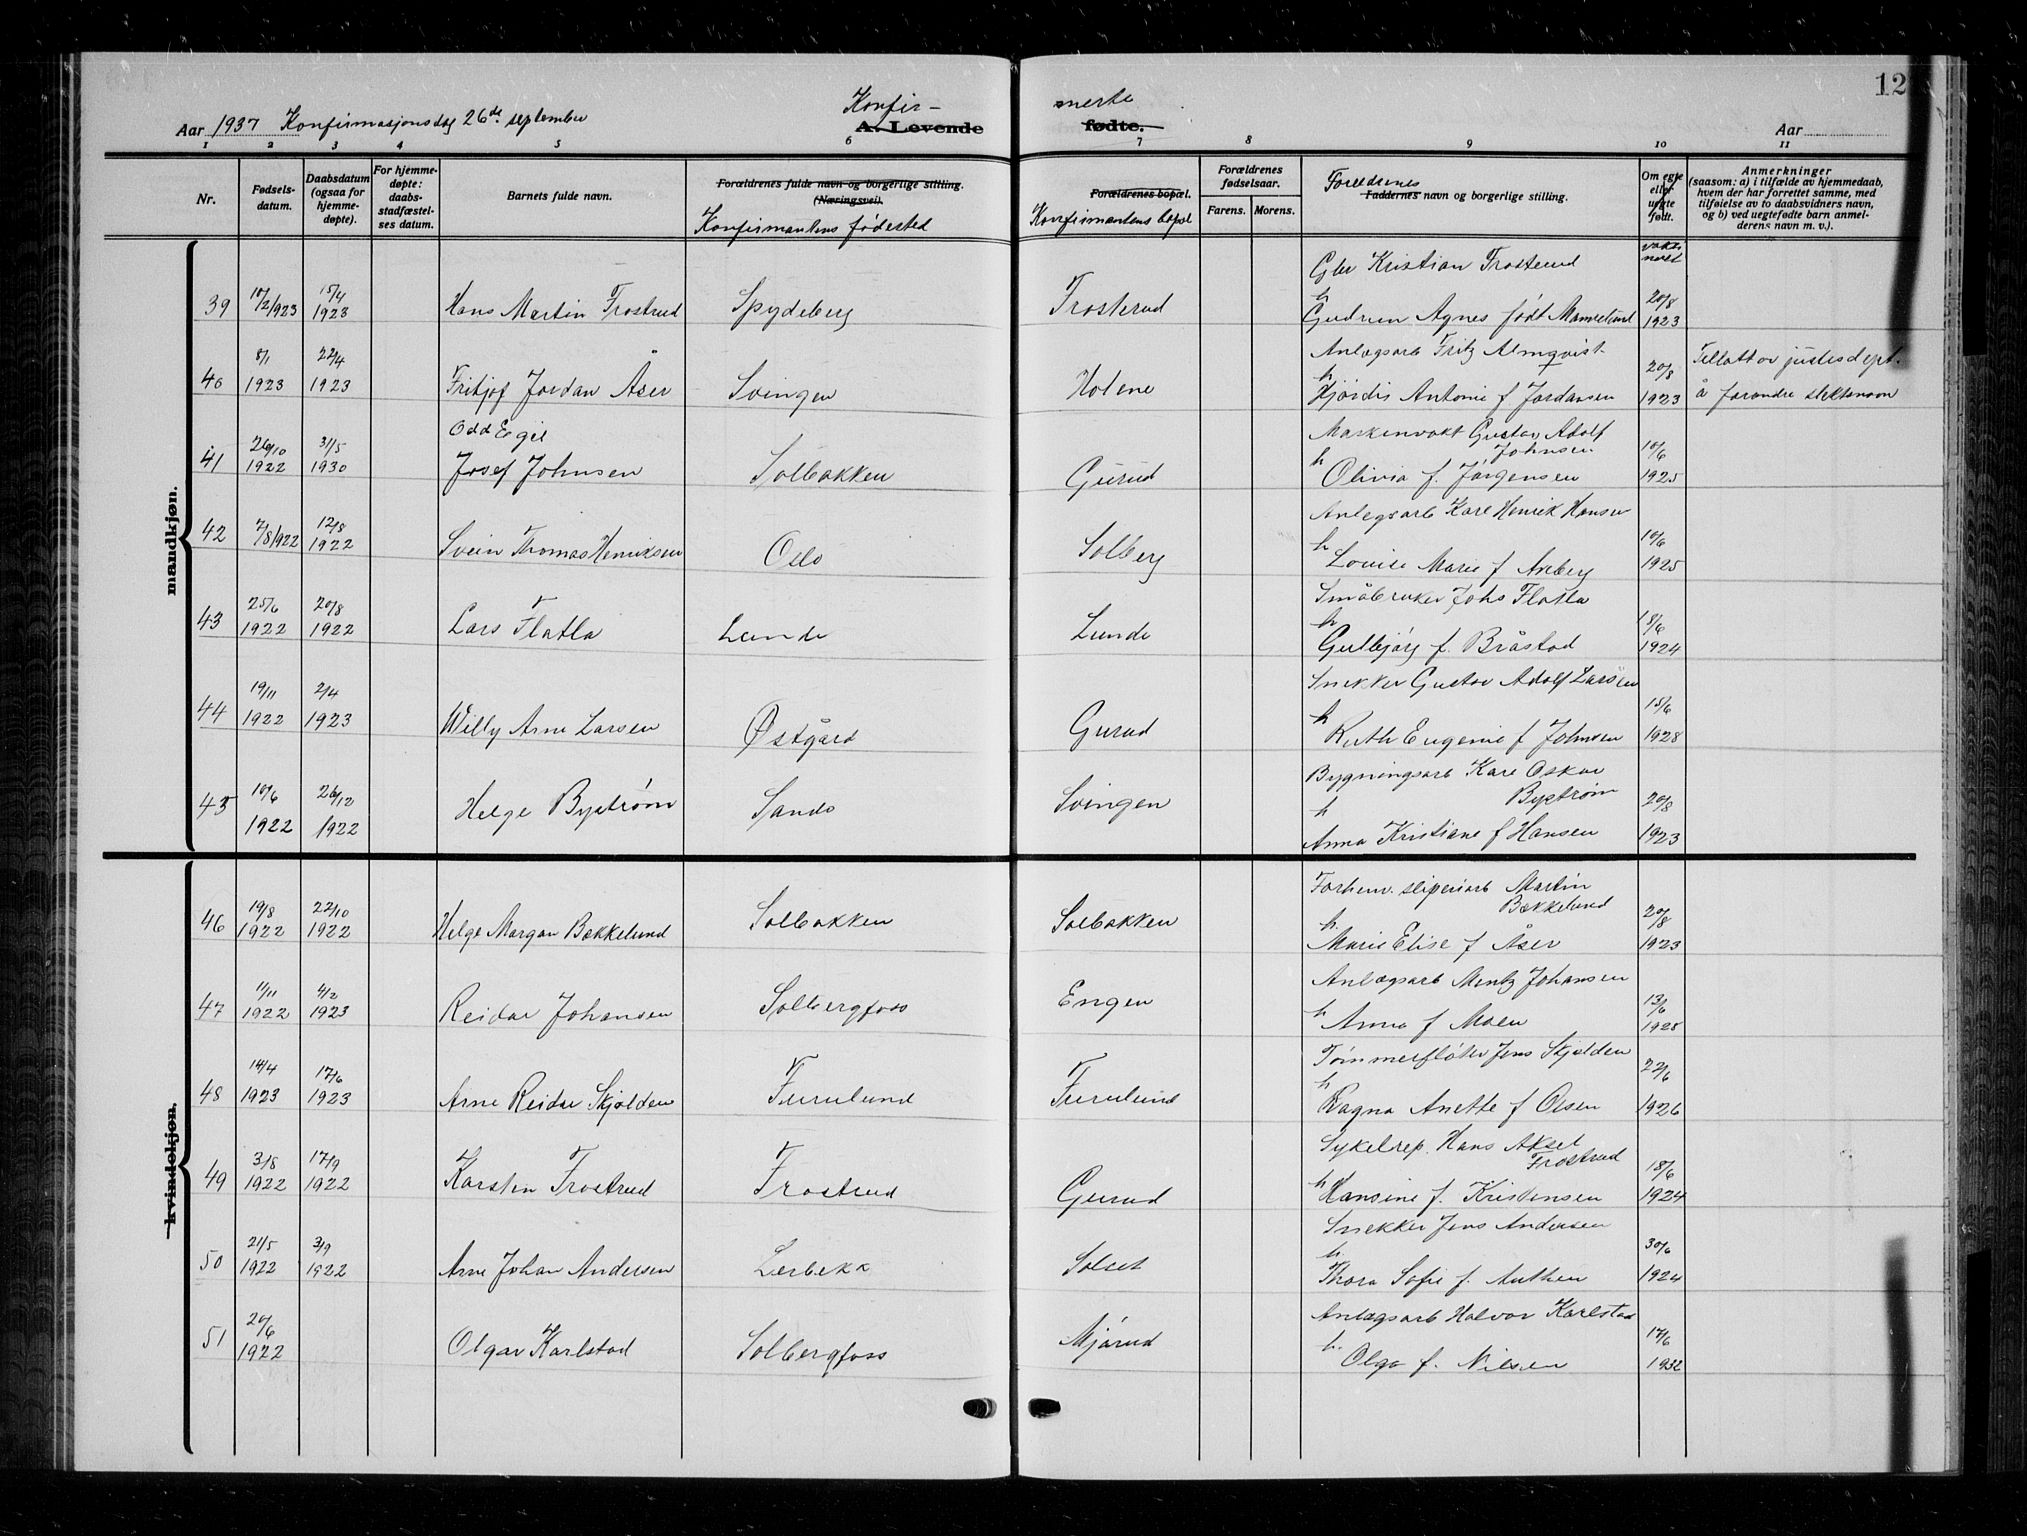 12
Aar 1937 Konfirmasjonsdag 26de september
Konfir- merte
A. Levende fødte.
Aar
1 2 3 4 5 6 7 8 9 10 11
Nr.
Fødsels-datum.
Daabsdatum (ogsaa for hjemme-døpte).
For hjemme-døpte: daabs-stadfæstel-ses datum.
Barnets fulde navn.
Forældrenes fulde navn og borgerlige stilling. (Næringsvei).
Konfirmantens fødested
Forældrenes bopæl.
Konfirmantens bopel
Forældrenes fødselsaar.
Farens. Morens.
Foreldrenes
Faddernes navn og borgerlige stilling.
Om egte eller uegte født.
Anmerkninger
(saasom: a) i tilfælde av hjemmedaab,
hvem der har forrettet samme, med
tilføielse av to daabsvidners navn,
og b) ved uegtefødte barn anmel-
derens navn m. v.).
mandkjøn.
39 10/2 1923 15/4 1923 Hans Martin Frostrud Spydeberg Trosterud Gbr Kristian Trosterud h Gudrun Agnes født 20/8 1923
40 8/1 1923 22/4 1923 Fritjof Jordan Åser Svingen Holene Anlægsarb Fritz Almqvist h Hjördis Antonie f Jordansen 20/8 1923 Tillatt av justisdept. å forandre slektsnavn
41 26/10 1922 31/5 1930 Odd Egil Josef Johnsen Solbakken Gurud Maskinvakt Gustav Adolf Johnsen h Olivia f. Jørgensen 10/6 1925
42 7/8 1922 12/8 1922 Svein Thomas Henriksen Oslo Solberg Anlegsarb Karl Henrik Hansen h Louise Marie f 10/6 1925
43 25/6 1922 20/8 1922 Lars Flatla Lunde Lunde Småbruker Johs Flatla h Gullbjörg f. Bråstad 18/6 1924
44 19/11 1922 2/4 1923 Willy Arne Larsen Østgård Gurud Snekker Gustav Adolf Larsen h Ruth Eugenie f Johnsen 15/6 1928
45 10/6 1922 26/12 1922 Helge Byström Sando Svingen Bygningsarb Karl Oskar Byström h Anna Kristiane f Hansen 20/8 1923
kvindekjøn.
46 19/8 1922 22/10 1922 Helge Morgan Bækkelund Solbakken Solbakken Forhenv. sliperiarb Martin Bækkelund h. Marie Elise f Åser 20/8 1923
47 11/11 1922 4/2 1923 Reidar Johansen Solbergfoss Engen Anlægsarb Mentz Johansen h Anna f Moen 13/6 1928
48 14/4 1923 17/6 1923 Arne Reidar Skjolden Furulund Furulund Tømmerfløter Jens Skjolden h Ragna Anette f Olsen 22/6 1926
49 3/8 1922 17/9 1922 Karsten Frostrud Frostrud Gurud Sykelrep. Hans Aksel Frostrud h Hansine f. Kristensen 18/6 1924
50 21/5 1922 3/9 1922 Arne Johan Andersen Lerbekk Solset Snekker Jens Andersen h. Thora Sofie f. Authen 30/6 1924
51 20/6 1922 Olgar Karlstad Solbergfoss Mjørud Anlægsarb Halvor Karlstad h. Olga f. Nilsen 17/6 1932